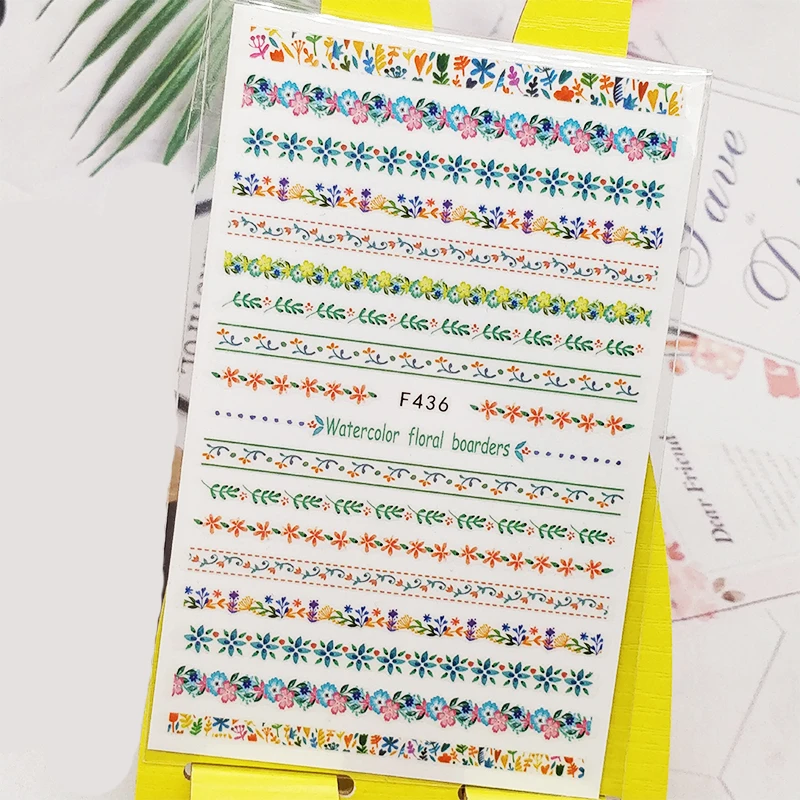 F436
Watercolor floral boarders
Save
Dear Friend